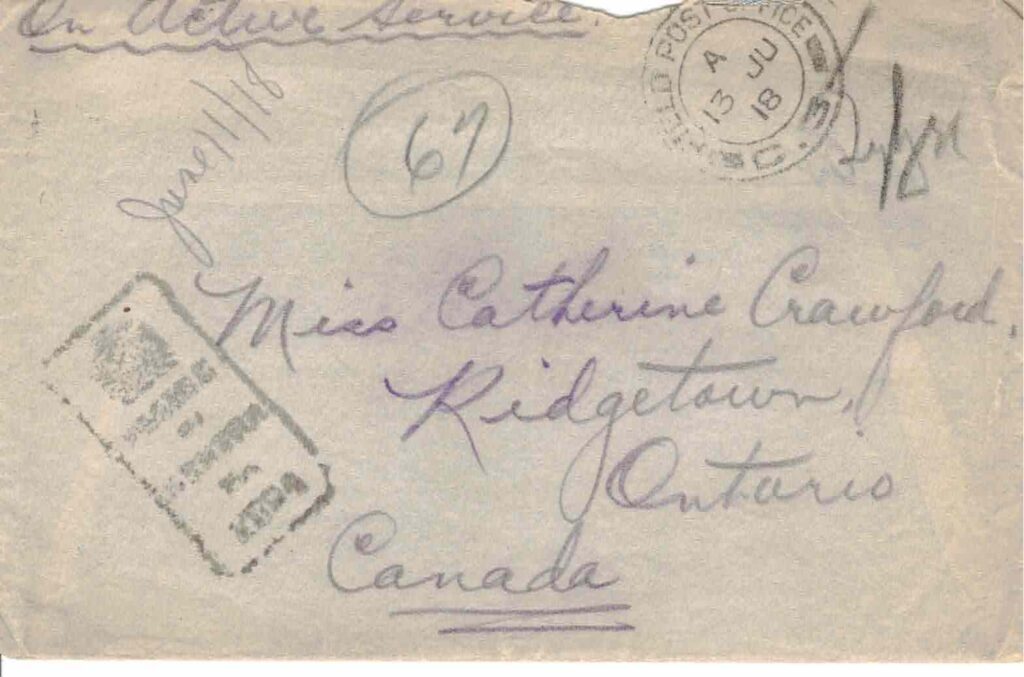 On Active Service.
FIELD POST OFFICE
A
13 JU
18
C. 3
June/11/18
67
Miss Catherine Crawford,
Ridgetown,
Ontario
Canada